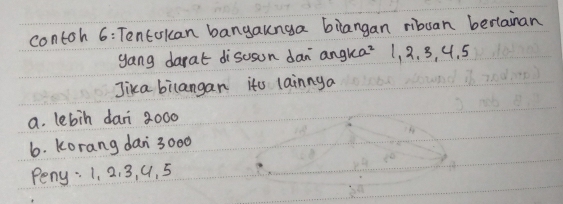 contoh 6: Tentukan banyaknya bilangan ribuan berlainan
yang dapat disusun dari angka² 1,2,3,4,5
Jika bilangan itu lainnya
a. lebih dari 2000
b. korang dari 3000
Peny: 1, 2, 3, 4, 5